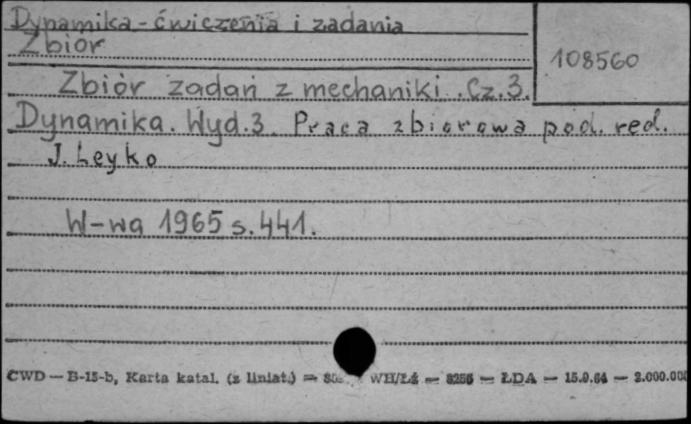 Dynamika - ćwiczenia i zadania
Zbiór
108560
Zbiór zadań z mechaniki. Cz.3.
Dynamika. Wyd.3. Praca zbiorowa pod. red.
J. Leyko
W-wa 1965 s.441.
CWD — B-15-b, Karta katal. (z liniat.) — WH/Łź — 8256 — ŁDA — 15.9.64 — 2.000.000